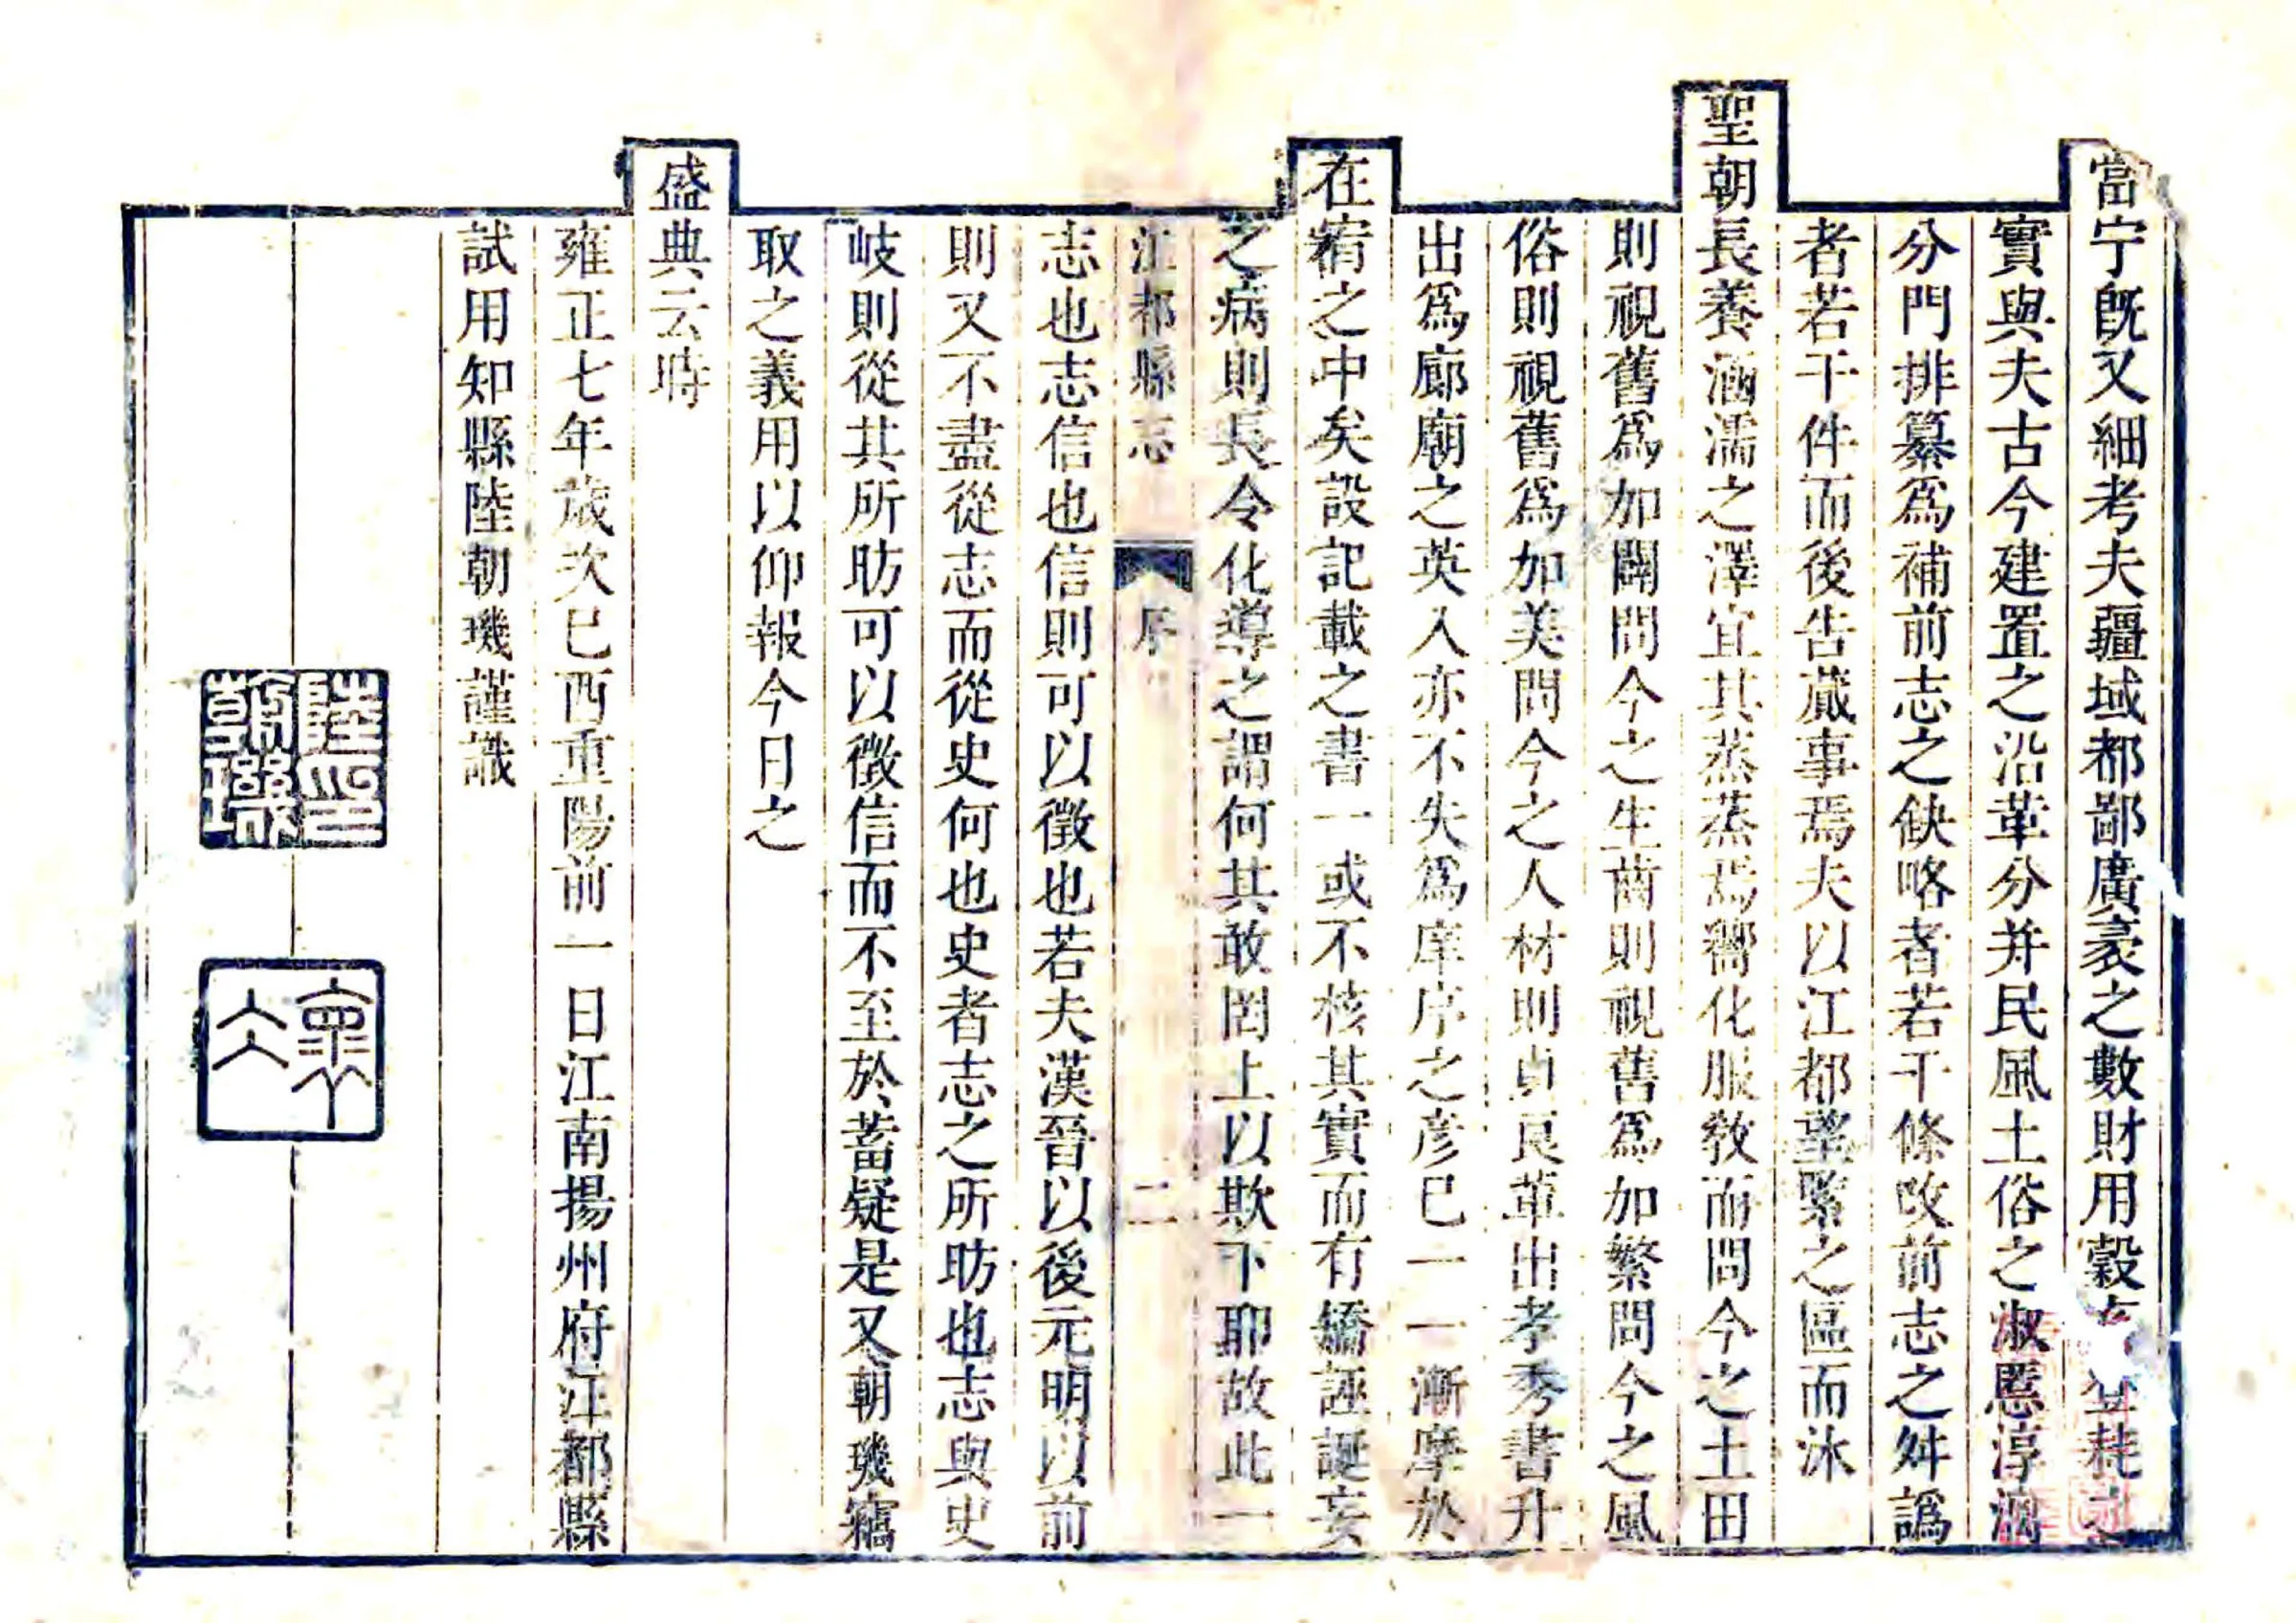 當宁旣又細考夫疆域都鄙廣袤之數財用穀
實與夫古今建置之沿革分并民風土俗之淑慝淳漓
分門排纂爲補前志之缺略者若干條改前志之舛譌
者若干件而後告蕆事焉夫以江都望緊之區而沐
聖朝長養涵濡之澤宜其蒸蒸焉嚮化服敎而問今之土田
則視舊爲加闢問今之生齒則視舊爲加繁問今之風
俗則視舊爲加美問今之人材則貞良輩出孝秀書升
出爲廊廟之英入亦不失爲庠序之彦已一一漸摩於
在宥之中矣設記載之書一或不核其實而有矯誣誕妄
之病則長令化導之謂何其敢罔上以欺下耶故此一
江都縣志 序 二
志也志信也信則可以徵也若夫漢晉以後元明以前
則又不盡從志而從史何也史者志之所昉也志與史
岐則從其所昉可以徵信而不至於蓄疑是又朝璣竊
取之義用以仰報今日之
盛典云時
雍正七年歲次已酉重陽前一日江南揚州府江都縣
試用知縣陸朝璣謹識
陸印朝璣